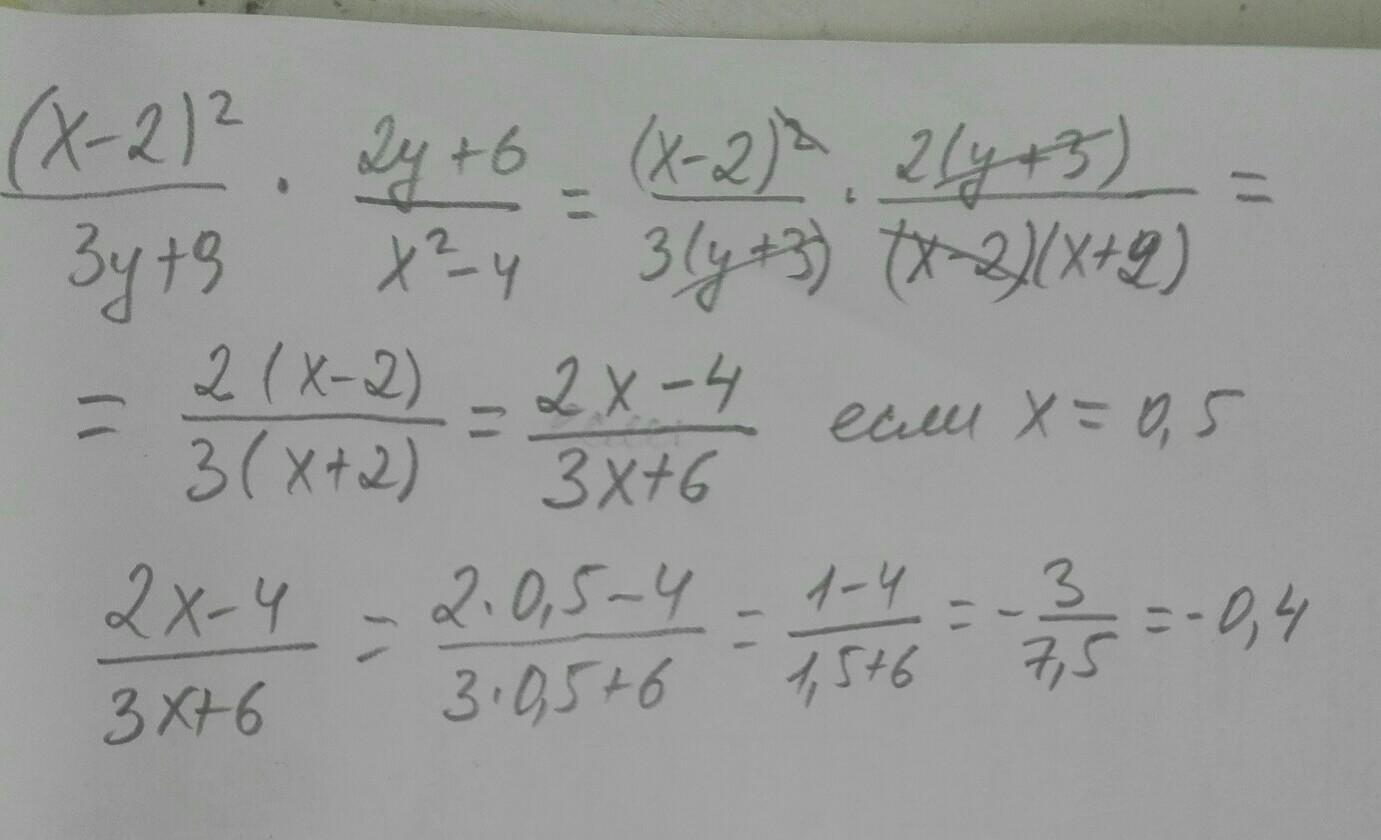 (x-2)²/3y+9 · 2y+6/x²-4 = (x-2)²/3(y+3) · 2(y+3)/(x-2)(x+2) =
= 2(x-2)/3(x+2) = 2x-4/3x+6 если x = 0,5
2x-4/3x+6 = 2·0,5-4/3·0,5+6 = 1-4/1,5+6 = -3/7,5 = -0,4